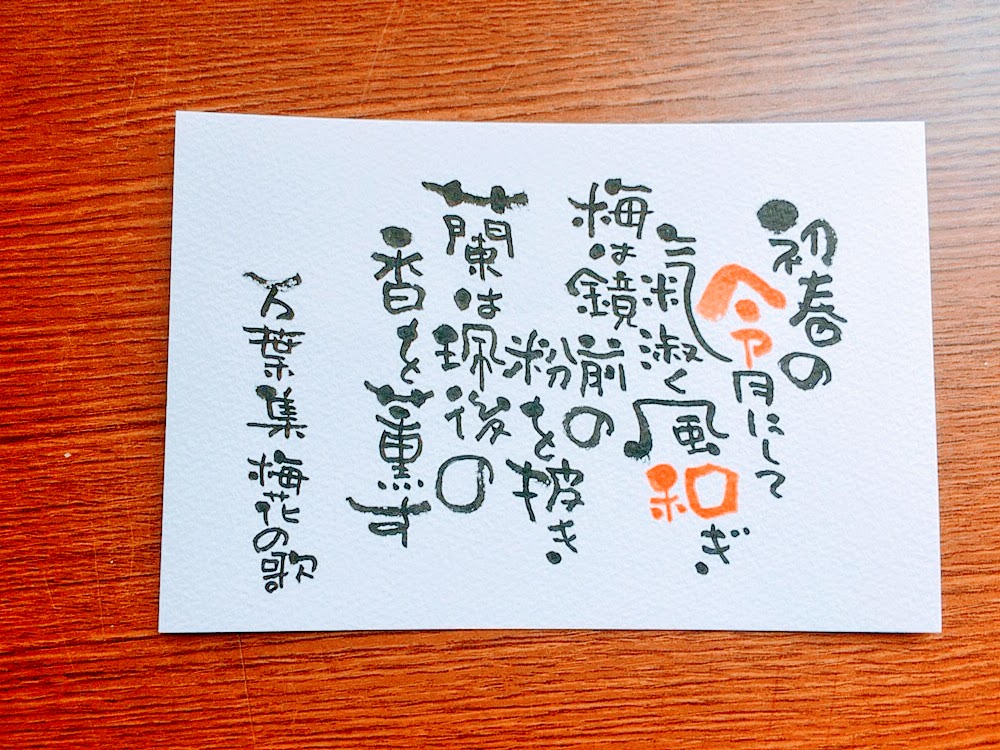 初春の
令月にして
氣淑く風和ぎ
梅は鏡前の
粉を披き
蘭は珮後の
香を薫す
万葉集 梅花の歌